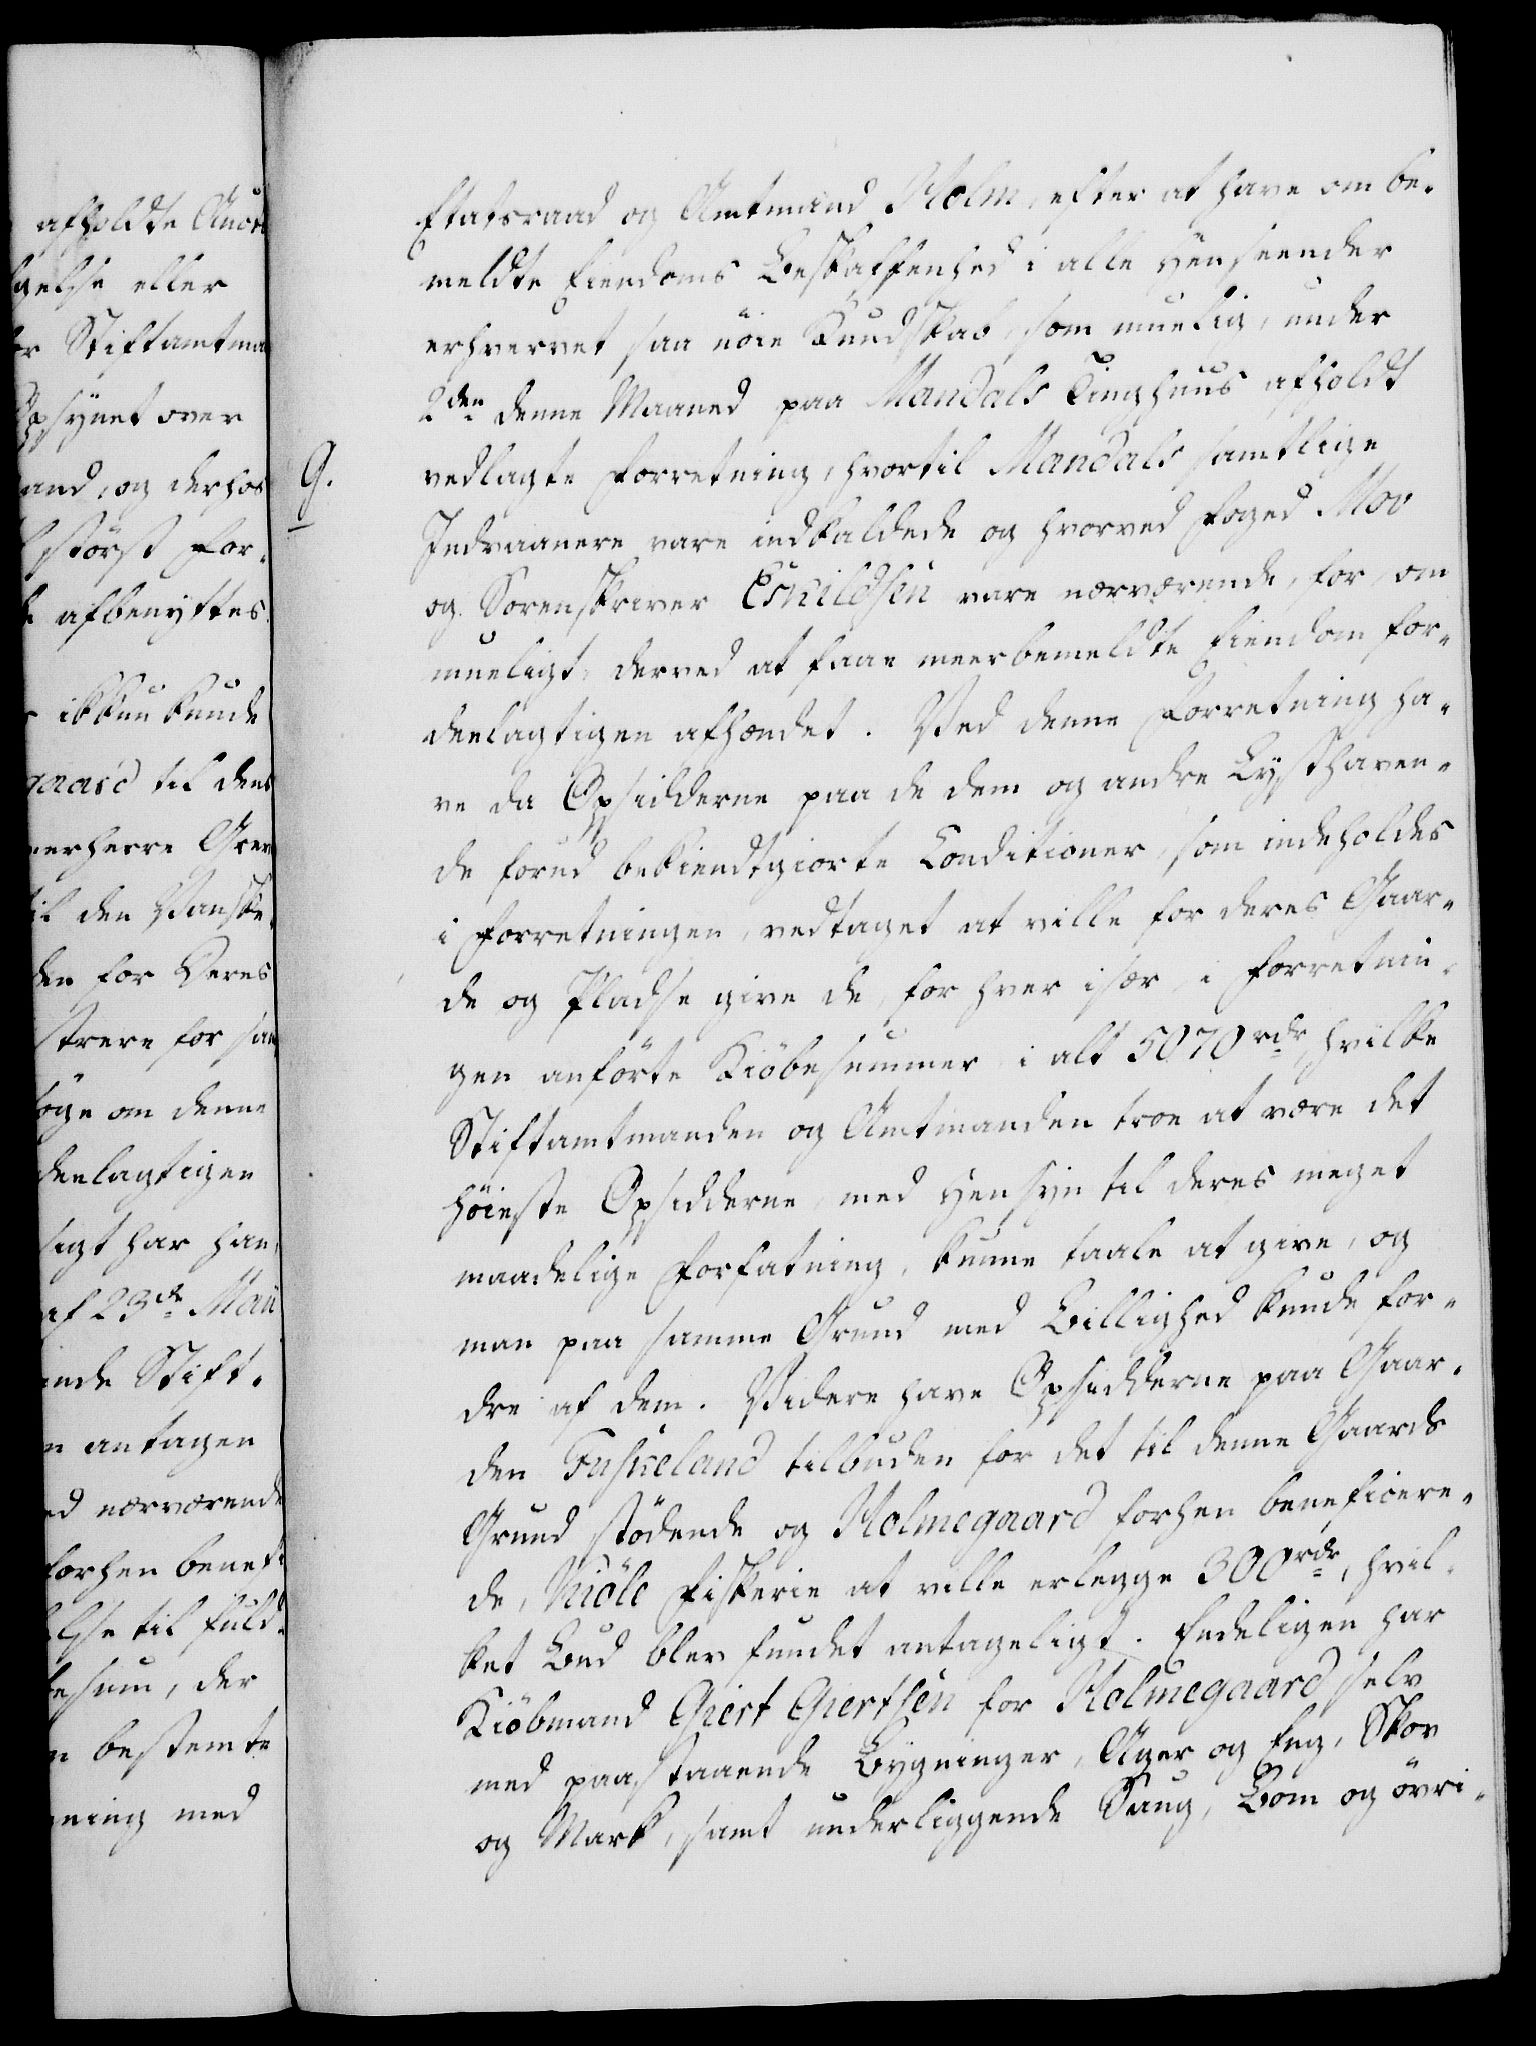 afholdte Auct
gelse eller
Stiftamtma
psynet over
and, og derhos
störst for-
afbenyttes.
ikkun kunde
gaard til den
merherre Grev
til den Vanske-
den for Deres
strere for saa
söge om denne
deelagtigen
sigt har han
af 23de Maii
inde Stift-
antagen
ed nærværende
forhen benefi
else til fuld-
esum, der
bestemte
ning med
Etatsraad og Amtmand Holm, efter at have om be-
meldte Eiendoms Beskaffenhed i alle Henseender
erhvervet saa nöie Kundskab, som muelig, under
2den denne Maaned paa Mandals Tinghuus afholdt
G. vedlagte Forretning, hvortil Mandals samtlige
Indvaanere vare indkaldede og hvorved Foged Mov
og Sorenskriver Eskildsen vare nærværende, for, om
mueligt, derved at faae meerbemeldte Eiendom for-
deelagtigen afhændet. Ved denne Forretning ha-
ve da Opsidderne paa de dem og andre Lysthaven-
de forud bekiendtgiorte Conditioner, som indeholdes
i Forretningen, vedtaget at ville for deres Gaar-
de og Pladse give de, for hver især, i Forretnin-
gen anförte Kiöbesummer, i alt 5070 rdr, hvilke
Stiftamtmanden og Amtmanden troe at være det
höieste Opsidderne, med Hensyn til deres meget
maadelige Forfatning, kunne taale at give, og
man paa samme Grund med Billighed kunde for-
dre af dem. Videre have Opsidderne paa Gaar-
den Fuskeland tilbuden for det til denne Gaards
Grund stödende og Holmegaard forhen beneficere-
de, Kiöle Fiskerie at ville erlegge 300 rdr, hvil-
ket Bud blev fundet antageligt. Endeligen har
Kiöbmand Giert Giertsen for Holmegaard selv
med paastaaende Bygninger, Ager og Eng, Skov
og Mark, samt underliggende Saug, Bom og övri-